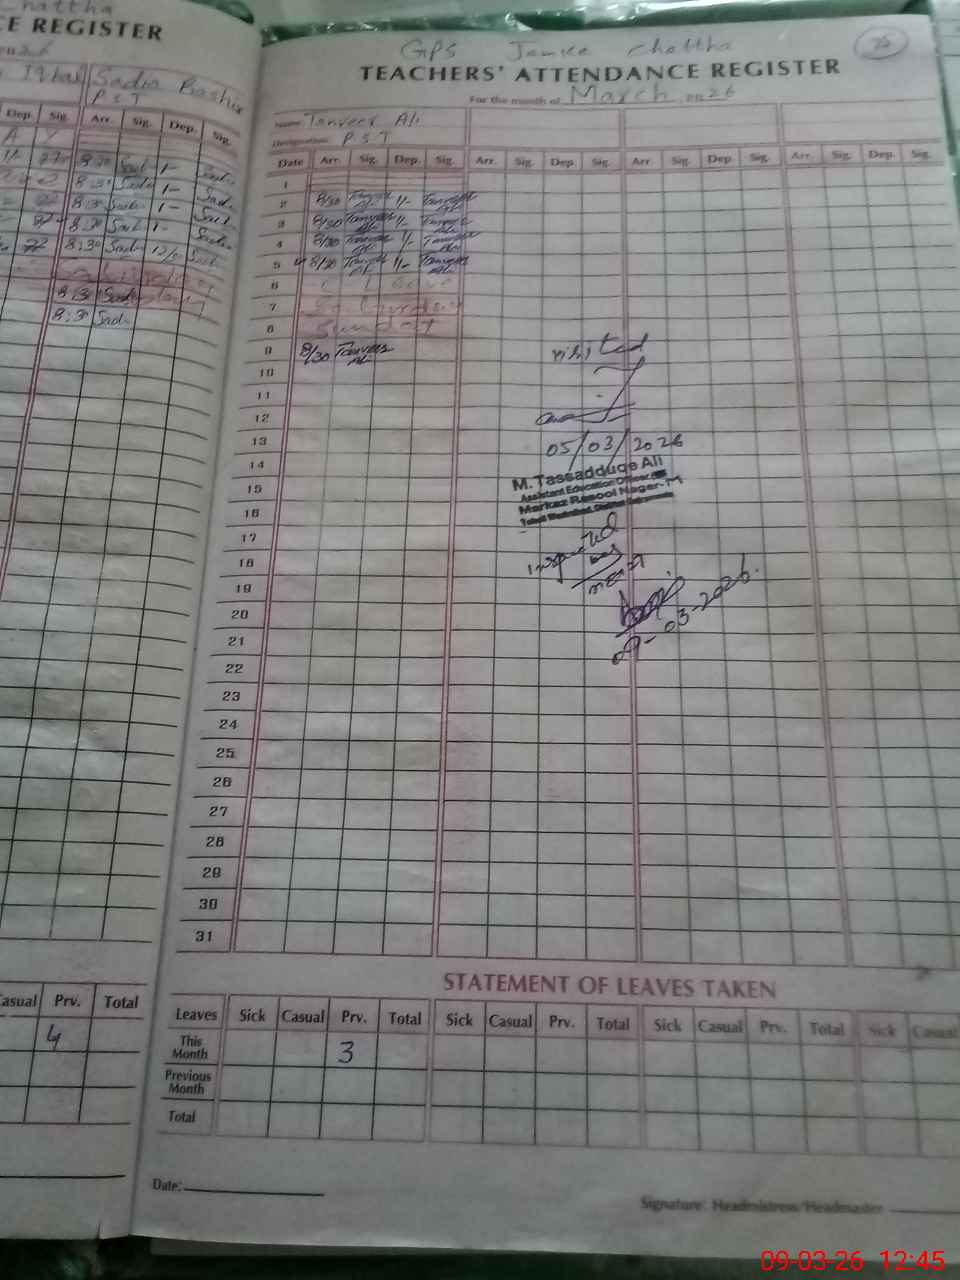 E REGISTER
Sadia Bashir
P.S.T
Dep. Sig. Arr. Sig. Dep. Sig.
8:30 Sadi 1- Sadi
8:3° Sadi 1- Sadi
8:3° Sadi 1- Sadi
8:30 Sadi 1- Sadi
8:30 Sadi 12/- Sadi
8:30 Sadi
8:30 Sadi
Casual Prv. Total
4
GPS Jamke Chattha
TEACHERS' ATTENDANCE REGISTER
For the month of March 2026
Name Tanveer Ali
Designation P.S.T
Date Arr. Sig. Dep. Sig. Arr. Sig. Dep. Sig. Arr. Sig. Dep. Sig. Arr. Sig. Dep. Sig.
1
2 8/30 Tanveer Ali 1/- Tanveer Ali
3 8/30 Tanveer Ali 1/- Tanveer Ali
4 8/30 Tanveer Ali 1/- Tanveer Ali
5 8/30 Tanveer Ali 1/- Tanveer Ali
6 C Leave
7 Saturday
8 Sunday
9 8/30 Tanveer Ali
10
11
12
13
14
15
16
17
18
19
20
21
22
23
24
25
26
27
28
29
30
31
visited
05/03/2026
M. Tassadduqe Ali
Assistant Education Officer
Markaz Rasool Nagar-M
Inspected
by
09-03-2026.
STATEMENT OF LEAVES TAKEN
Leaves Sick Casual Prv. Total Sick Casual Prv. Total Sick Casual Prv. Total Sick Casual
This Month 3
Previous Month
Total
Date:
Signature: Headmistress/Headmaster
09-03-26 12:45